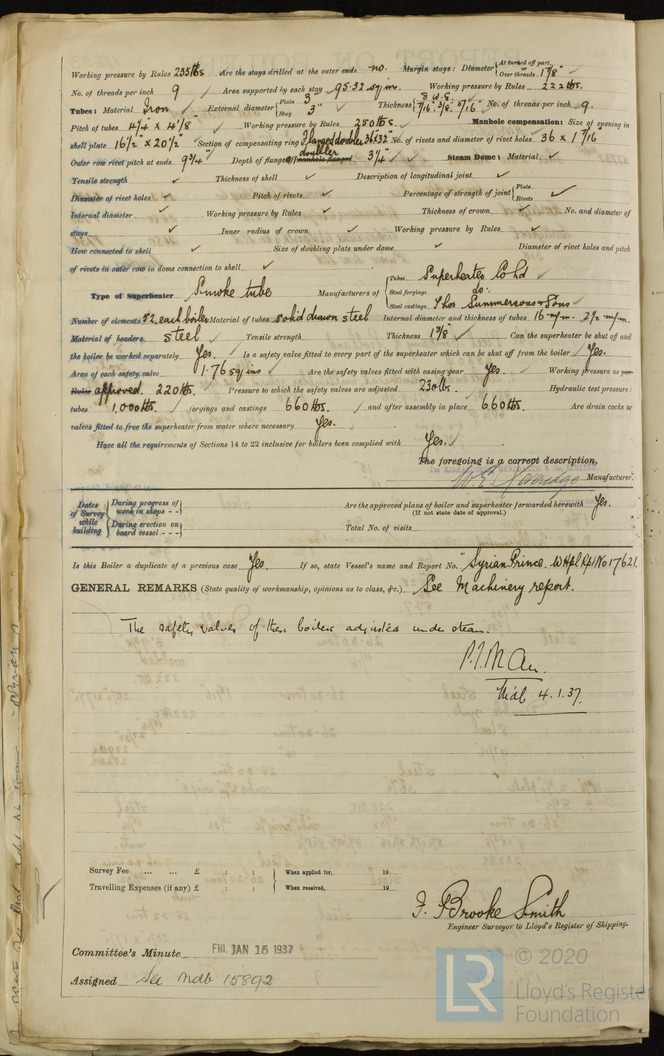 Working pressure by Rules 235 lbs Are the stays drilled at the outer ends no. Margin stays: Diameter { At turned off part, or Over threads 1 7/8" ✓
No. of threads per inch 9 ✓ Area supported by each stay 95.32 sq in. ✓ Working pressure by Rules 222 lbs.
Tubes: Material Iron ✓ External diameter { Plain 3" Stay 3" ✓ Thickness { 8 W.G. 7/16" 3/8" 5/16" ✓ No. of threads per inch 9.
Pitch of tubes 4 1/4" x 4 1/8" ✓ Working pressure by Rules 250 lbs. ✓ Manhole compensation: Size of opening in
shell plate 16 1/2" x 20 1/2" ✓ Section of compensating ring Flanged doubler 36 x 32" No. of rivets and diameter of rivet holes 36 x 1 7/16"
Outer row rivet pitch at ends 9 3/4" ✓ Depth of flange if manhole flanged doubler 3 1/4" ✓ Steam Dome: Material ✓
Tensile strength ✓ Thickness of shell ✓ Description of longitudinal joint ✓
Diameter of rivet holes ✓ Pitch of rivets ✓ Percentage of strength of joint { Plate Rivets ✓
Internal diameter ✓ Working pressure by Rules ✓ Thickness of crown ✓ No. and diameter of
stays ✓ Inner radius of crown ✓ Working pressure by Rules ✓
How connected to shell ✓ Size of doubling plate under dome ✓ Diameter of rivet holes and pitch
of rivets in outer row in dome connection to shell ✓
Type of Superheater Smoke tube Manufacturers of { Tubes Superheater Co Ld ✓
Steel forgings do. ✓
Steel castings Thos Summerson & Sons ✓
Number of elements 82 each boiler Material of tubes Solid drawn steel Internal diameter and thickness of tubes 16 m/m. 2 1/2 m/m.
Material of headers steel ✓ Tensile strength Thickness 1 3/8" ✓ Can the superheater be shut off and
the boiler be worked separately Yes. Is a safety valve fitted to every part of the superheater which can be shut off from the boiler ✓ Yes.
Area of each safety valve 1.76 sq ins ✓ Are the safety valves fitted with easing gear Yes. ✓ Working pressure as per
Rules approved 220 lbs. ✓ Pressure to which the safety valves are adjusted 230 lbs. ✓ Hydraulic test pressure:
tubes 1,000 lbs. ✓ forgings and castings 660 lbs. ✓ and after assembly in place ✓ 660 lbs. Are drain cocks or
valves fitted to free the superheater from water where necessary Yes. ✓
Have all the requirements of Sections 14 to 22 inclusive for boilers been complied with Yes. ✓
The foregoing is a correct description,
Manufacturer.
Dates of Survey while building { During progress of work in shops - - } Are the approved plans of boiler and superheater forwarded herewith Yes.
(If not state date of approval.)
{ During erection on board vessel - - } Total No. of visits
Is this Boiler a duplicate of a previous case Yes. If so, state Vessel's name and Report No. "Syrian Prince. W Hpl Rpt No 17621.
GENERAL REMARKS (State quality of workmanship, opinions as to class, &c.) See Machinery report.
The safety valves of these boilers adjusted under steam.
Mdb 4.1.37.
Survey Fee ... ... £ : : When applied for, 19
Travelling Expenses (if any) £ : : When received, 19
F. Brooke Smith
Engineer Surveyor to Lloyd's Register of Shipping.
Committee's Minute FRI. JAN 15 1937
Assigned See Mdb 15892
LR © 2020
Lloyd's Register
Foundation